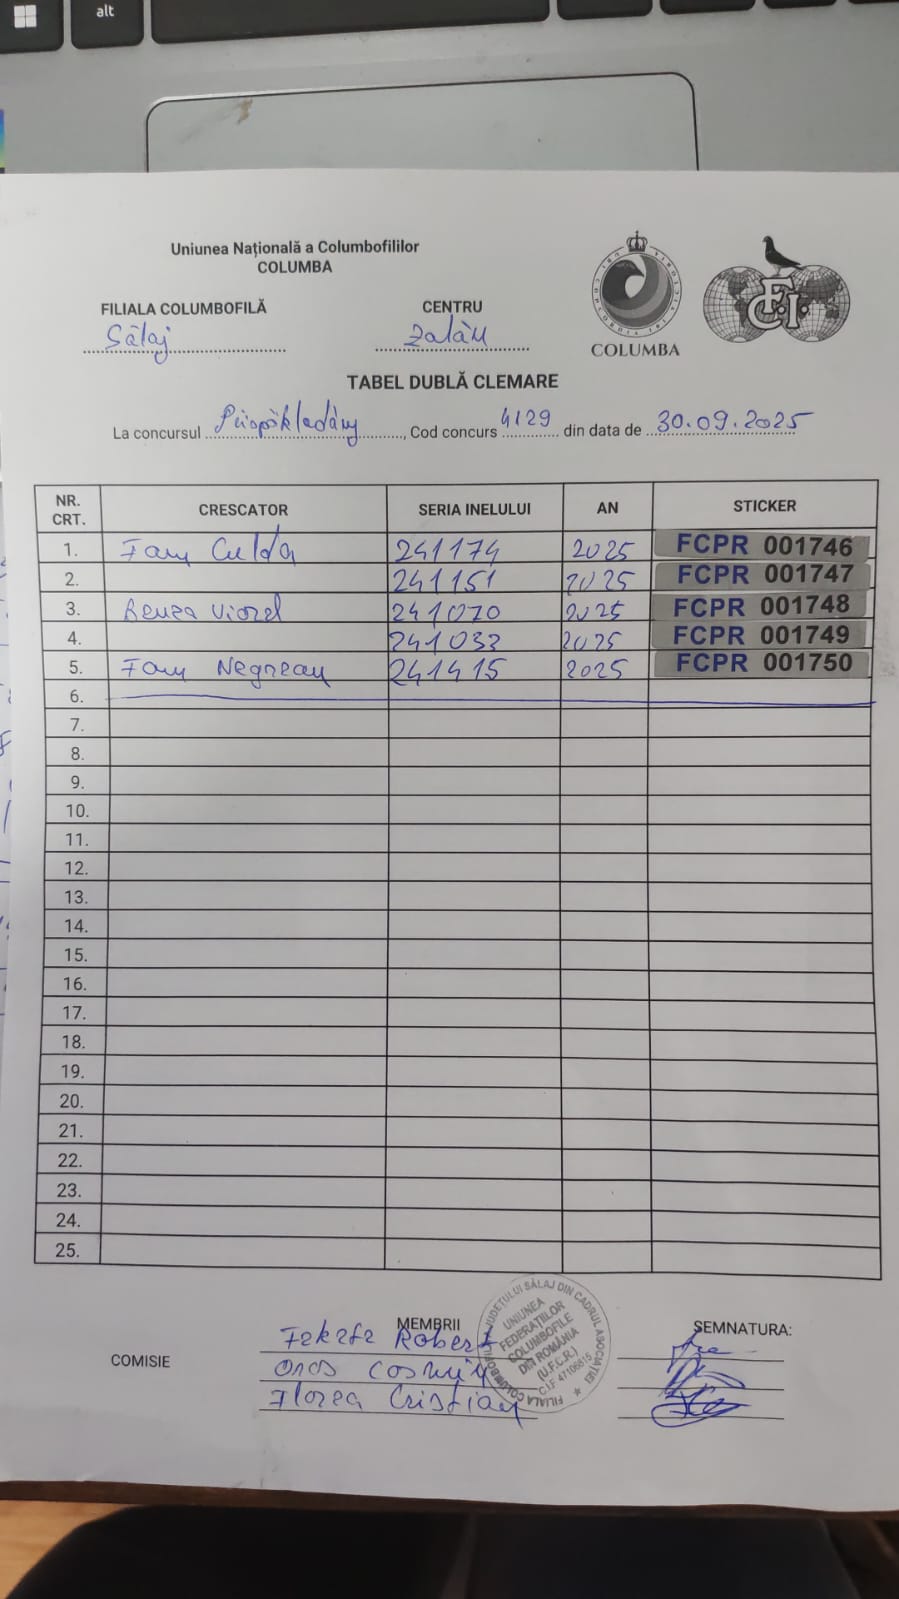 alt
Uniunea Națională a Columbofililor
COLUMBA
FILIALA COLUMBOFILĂ CENTRU
Sălaj Zalău
COLUMBA
F.C.I.
TABEL DUBLĂ CLEMARE
La concursul Püspökladány, Cod concurs 4129 din data de 30.09.2025
NR. CRT. CRESCATOR SERIA INELULUI AN STICKER
1. Fam Culda 241174 2025 FCPR 001746
2. 241151 2025 FCPR 001747
3. Benea Viorel 241070 2025 FCPR 001748
4. 241033 2025 FCPR 001749
5. Fam Negrean 241415 2025 FCPR 001750
6.
7.
8.
9.
10.
11.
12.
13.
14.
15.
16.
17.
18.
19.
20.
21.
22.
23.
24.
25.
COMISIE
MEMBRII
Robert
Oros Cosmin
Florea Cristian
FILIALA COLUMBOFILĂ A JUDEȚULUI SĂLAJ DIN CADRUL ASOCIAȚIEI
UNIUNEA
FEDERAȚIILOR
COLUMBOFILE
DIN ROMÂNIA
(U.F.C.R.)
C.I.F. 47106815
SEMNATURA: